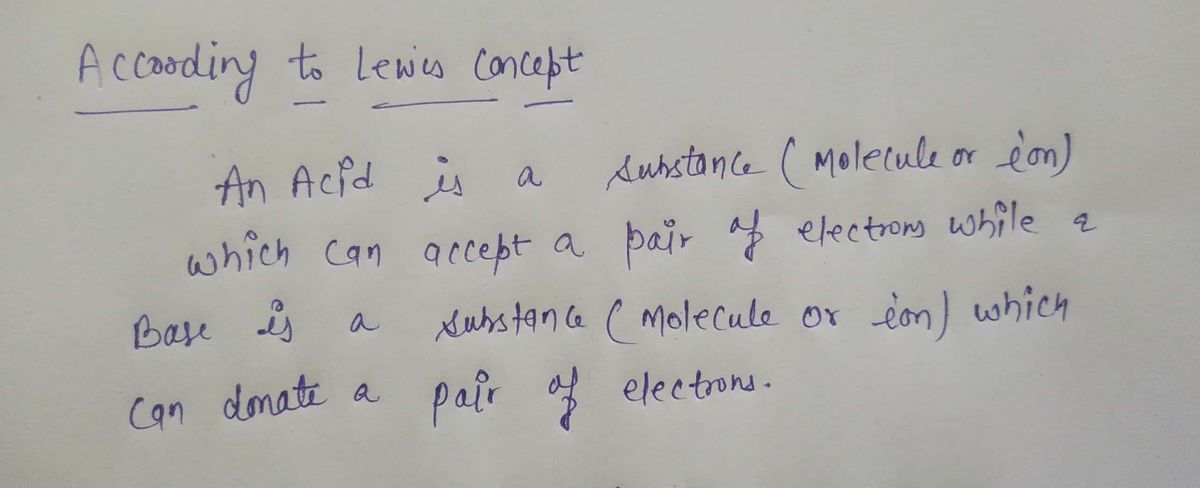 According to Lewis Concept
An Acid is a substance (Molecule or ion)
which can accept a pair of electrons while a
Base is a substance (Molecule or ion) which
can donate a pair of electrons.